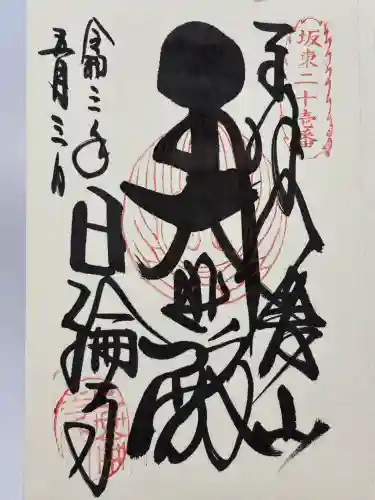 坂東二十壱番
奉拝八溝山
大悲殿
日輪寺
令和三年
五月三日